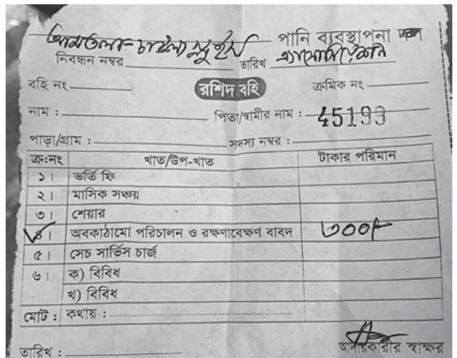 আমতলা-চাউলা স্লুইস পানি ব্যবস্থাপনা দল
নিবন্ধন নম্বর তারিখ এ্যাসোসিয়েশন
বহি নং রশিদ বহি ক্রমিক নং
নাম : পিতা/স্বামীর নাম : 45193
পাড়া/গ্রাম : সদস্য নম্বর :
ক্র:নং খাত/উপ-খাত টাকার পরিমান
১। ভর্তি ফি
২। মাসিক সঞ্চয়
৩। শেয়ার
৪। অবকাঠামো পরিচালন ও রক্ষণাবেক্ষণ বাবদ ৩০০/-
৫। সেচ সার্ভিস চার্জ
৬। ক) বিবিধ
খ) বিবিধ
মোট : কথায় :
তারিখ : আদায়কারীর স্বাক্ষর